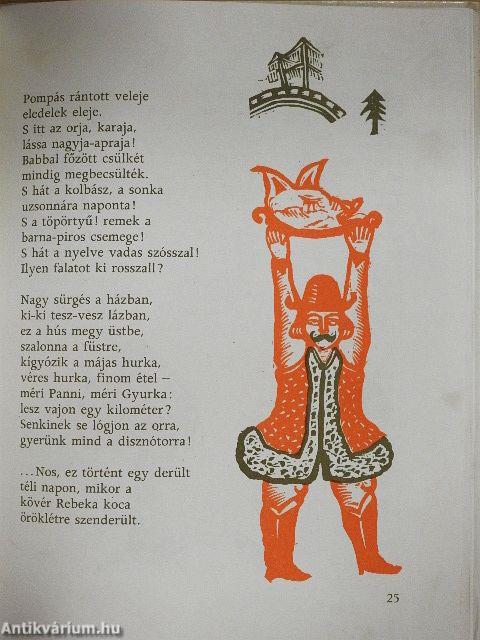 Pompás rántott veleje
eledelek eleje.
S itt az orja, karaja,
lássa nagyja-apraja!
Babbal főzött csülkét
mindig megbecsülték.
S hát a kolbász, a sonka
uzsonnára naponta!
S a töpörtyű! remek a
barna-piros csemege!
S hát a nyelve vadas szósszal!
Ilyen falatot ki rosszall?
Nagy sürgés a házban,
ki-ki tesz-vesz lázban,
ez a hús megy üstbe,
szalonna a füstre,
kígyózik a májas hurka,
véres hurka, finom étel –
méri Panni, méri Gyurka:
lesz vajon egy kilométer?
Senkinek se lógjon az orra,
gyerünk mind a disznótorra!
...Nos, ez történt egy derült
téli napon, mikor a
kövér Rebeka koca
öröklétre szenderült.
25
Antikvárium.hu